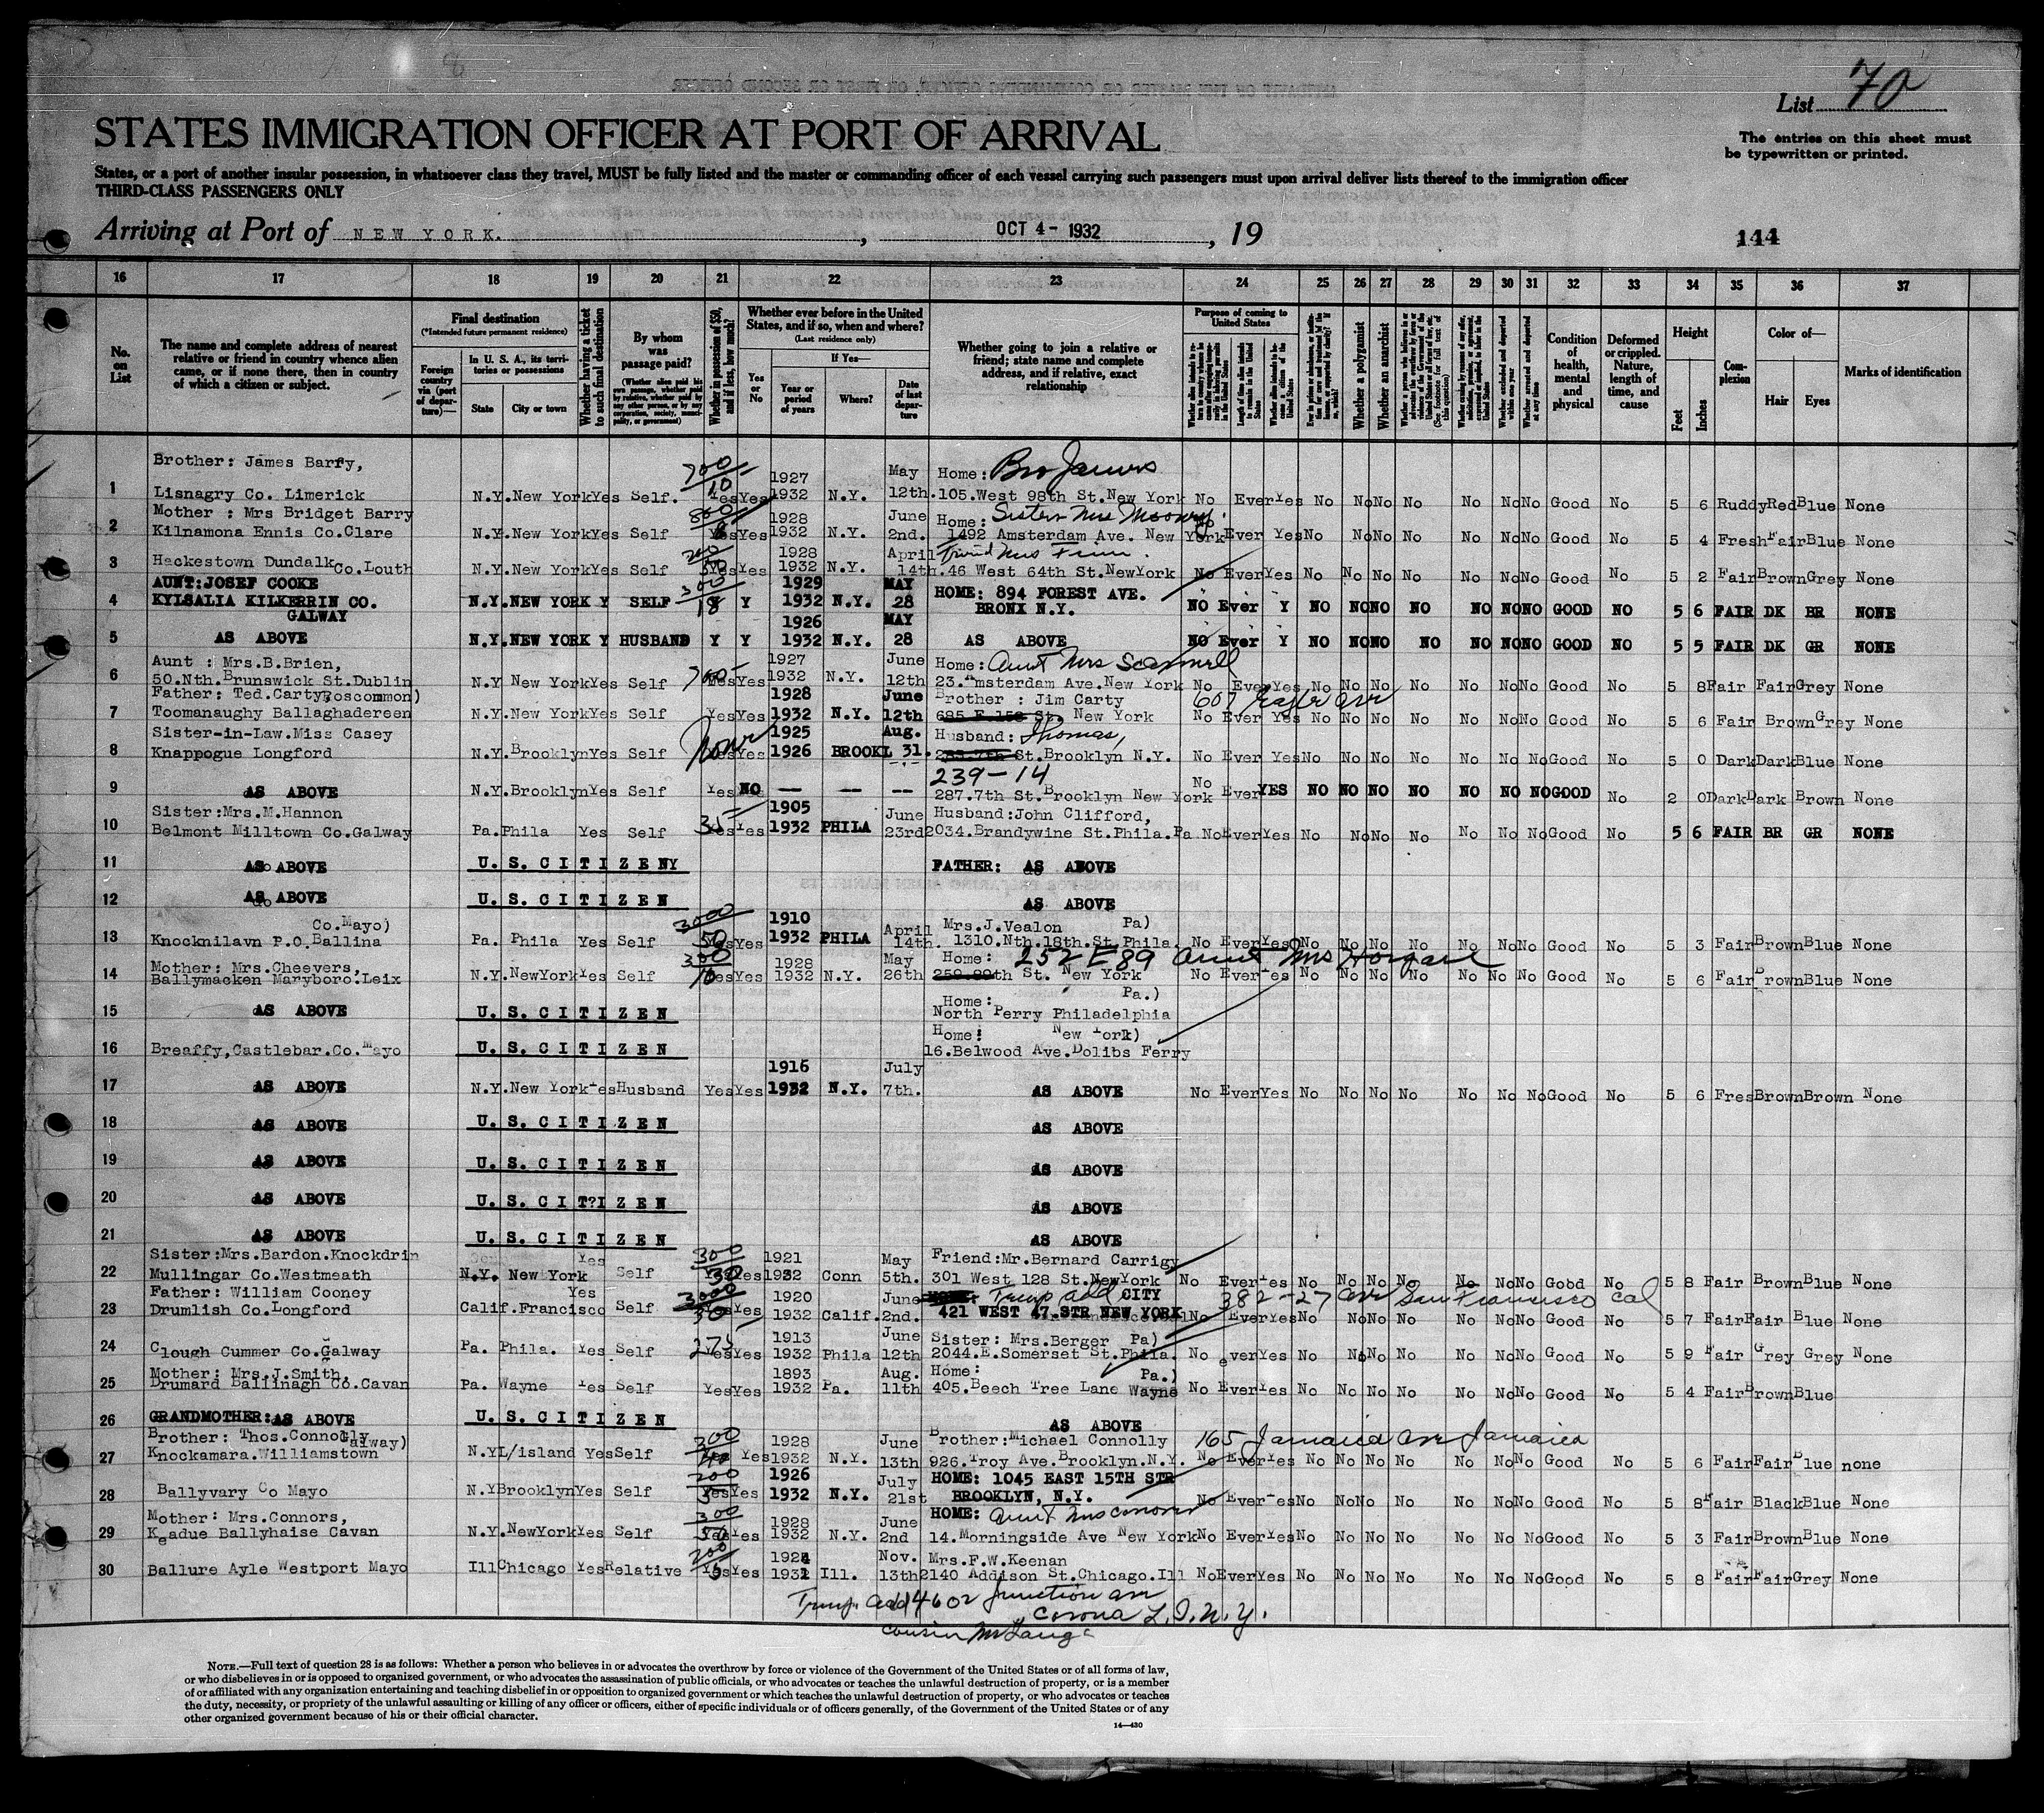 List 70
STATES IMMIGRATION OFFICER AT PORT OF ARRIVAL
The entries on this sheet must
be typewritten or printed.
States, or a port of another insular possession, in whatsoever class they travel, MUST be fully listed and the master or commanding officer of each vessel carrying such passengers must upon arrival deliver lists thereof to the immigration officer
THIRD-CLASS PASSENGERS ONLY
Arriving at Port of NEW YORK. , OCT 4 - 1932 , 19
144
16 17 18 19 20 21 22 23 24 25 26 27 28 29 30 31 32 33 34 35 36 37
No. on List
The name and complete address of nearest relative or friend in country whence alien came, or if none there, then in country of which a citizen or subject.
Final destination
(*Intended future permanent residence)
Foreign country via (port of departure)—
In U. S. A., its territories or possessions
State
City or town
Whether having a ticket to such final destination
By whom was passage paid?
Whether in possession of $50, and if less, how much?
Whether ever before in the United States, and if so, when and where?
(Last residence only)
Yes or No
If Yes—
Year or period of years
Where?
Date of last departure
Whether going to join a relative or friend; state name and complete address, and if relative, exact relationship
Purpose of coming to United States
Whether a polygamist
Whether an anarchist
Condition of health, mental and physical
Deformed or crippled. Nature, length of time, and cause
Height
Feet
Inches
Complexion
Color of—
Hair
Eyes
Marks of identification
Brother: James Barry, 700 1927 May Home: Bro James
1 Lisnagry Co. Limerick N.Y. New York Yes Self. 10 Yes Yes 1932 N.Y. 12th. 105. West 98th St. New York No Ever Yes No No No No No No No Good No 5 6 Ruddy Red Blue None
Mother: Mrs Bridget Barry 800 1928 June Home: Sister Mrs Mooney
2 Kilnamona Ennis Co. Clare N.Y. New York Yes Self Yes Yes 1932 N.Y. 2nd. 1492 Amsterdam Ave. New York Ever Yes No No No No No No No Good No 5 4 Fresh Fair Blue None
200 1928 April Friend Mrs Finn.
3 Hackestown Dundalk Co. Louth N.Y. New York Yes Self Yes Yes 1932 N.Y. 14th. 46 West 64th St. New York No Ever Yes No No No No No No No Good No 5 2 Fair Brown Grey None
AUNT: JOSEF COOKE 300 1929 MAY HOME: 894 FOREST AVE.
4 KYLSALIA KILKERRIN CO. GALWAY N.Y. NEW YORK Y SELF 18 Y Y 1932 N.Y. 28 BRONX N.Y. NO Ever Y NO NO NO NO NO NO NO GOOD NO 5 6 FAIR DK BR NONE
1926 MAY
5 AS ABOVE N.Y. NEW YORK Y HUSBAND Y Y 1932 N.Y. 28 AS ABOVE NO Ever Y NO NO NO NO NO NO NO GOOD NO 5 5 FAIR DK GR NONE
Aunt: Mrs. B. Brien, 1927 June Home: Aunt Mrs
6 50. Nth. Brunswick St. Dublin N.Y New York Yes Self 700 Yes Yes 1932 N.Y. 12th 23. Amsterdam Ave. New York No Ever Yes No No No No No No No Good No 5 8 Fair Fair Grey None
Father: Ted. Carty, Roscommon) 1928 June Brother: Jim Carty 607 Eagle Ave
7 Toomanaughy Ballaghadereen N.Y. New York Yes Self Yes Yes 1932 N.Y. 12th 685 E. 156 St. New York No Ever Yes No No No No No No No Good No 5 6 Fair Brown Grey None
Sister-in-Law. Miss Casey 1925 Aug. Husband: Thomas,
8 Knappogue Longford N.Y. Brooklyn Yes Self None Yes Yes 1926 BROOKL 31. St. Brooklyn N.Y. No Ever Yes No No No No No No No Good No 5 0 Dark Dark Blue None
239-14
9 AS ABOVE N.Y. Brooklyn Yes Self Yes NO — — — 287. 7th St. Brooklyn New York No Ever YES NO NO NO NO NO NO NO GOOD No 2 0 Dark Dark Brown None
Sister: Mrs. M. Hannon 1905 June Husband: John Clifford,
10 Belmont Milltown Co. Galway Pa. Phila Yes Self 35 Yes Yes 1932 PHILA 23rd 2034. Brandywine St. Phila. Pa No Ever Yes No No No No No No No Good No 5 6 FAIR BR GR NONE
11 AS ABOVE U. S. C I T I Z E N Y FATHER: AS ABOVE
12 AS ABOVE U. S. C I T I Z E N AS ABOVE
Co. Mayo) 3000 1910 April Mrs. J. Vealon Pa)
13 Knocknilavn P.O. Ballina Pa. Phila Yes Self 50 Yes Yes 1932 PHILA 14th. 1310. Nth. 18th. St. Phila. No Ever Yes No No No No No No No Good No 5 3 Fair Brown Blue None
Mother: Mrs. Cheevers, 300 1928 May Home: 252 E 89 Aunt Mrs Horgan
14 Ballymacken Maryboro. Leix N.Y. New York Yes Self 10 Yes Yes 1932 N.Y. 26th 259. 89th St. New York No Ever Yes No No No No No No No Good No 5 6 Fair Brown Blue None
Home: Pa.)
15 AS ABOVE U. S. C I T I Z E N North Perry Philadelphia
Home: New York)
16 Breaffy, Castlebar. Co. Mayo U. S. C I T I Z E N 16. Belwood Ave. Dolibs Ferry
1916 July
17 AS ABOVE N.Y. New York Yes Husband Yes Yes 1932 N.Y. 7th. AS ABOVE No Ever Yes No No No No No No No Good No 5 6 Fres Brown Brown None
18 AS ABOVE U. S. C I T I Z E N AS ABOVE
19 AS ABOVE U. S. C I T I Z E N AS ABOVE
20 AS ABOVE U. S. C I T ? I Z E N AS ABOVE
21 AS ABOVE U. S. C I T I Z E N AS ABOVE
Sister: Mrs. Bardon. Knockdrin Yes 300 1921 May Friend: Mr. Bernard Carrigy
22 Mullingar Co. Westmeath N.Y. New York Self 30 Yes Yes 1932 Conn 5th. 301 West 128 St. New York No Ever Yes No No No No No No No Good No 5 8 Fair Brown Blue None
Father: William Cooney Yes 3000 1920 June Temp add CITY 382-27 Ave San Francisco Cal
23 Drumlish Co. Longford Calif. Francisco Self 50 Yes Yes 1932 Calif. 2nd. 421 WEST 47. STR NEW YORK No Ever Yes No No No No No No No Good No 5 7 Fair Fair Blue None
1913 June Sister: Mrs. Berger Pa)
24 Clough Cummer Co. Galway Pa. Phila. Yes Self 275 Yes Yes 1932 Phila 12th 2044. E. Somerset St. Phila. No ever Yes No No No No No No No Good No 5 9 Fair Grey Grey None
Mother: Mrs. J. Smith, 1893 Aug. Home: Pa.)
25 Drumard Ballinagh Co. Cavan Pa. Wayne Yes Self Yes Yes 1932 Pa. 11th 405. Beech Tree Lane Wayne No Ever Yes No No No No No No No Good No 5 4 Fair Brown Blue
26 GRANDMOTHER: AS ABOVE U. S. C I T I Z E N AS ABOVE
Brother: Thos. Connolly Galway) 300 1928 June Brother: Michael Connolly 165 Jamaica Ave Jamaica
27 Knockamara. Williamstown N.Y L/island Yes Self 40 Yes 1932 N.Y. 13th 926. Troy Ave. Brooklyn. N.Y. No Ever Yes No No No No No No No Good No 5 6 Fair Fair Blue none
200 1926 July HOME: 1045 EAST 15TH STR
28 Ballyvary Co Mayo N.Y Brooklyn Yes Self 5 Yes Yes 1932 N.Y. 21st BROOKLYN, N.Y. No Ever Yes No No No No No No No Good No 5 8 Fair Black Blue None
Mother: Mrs. Connors, 300 1928 June HOME: Aunt Mrs
29 Keadue Ballyhaise Cavan N.Y. New York Yes Self 50 Yes Yes 1932 N.Y. 2nd 14. Morningside Ave New York No Ever Yes No No No No No No No Good No 5 3 Fair Brown Blue None
200 1924 Nov. Mrs. F.W. Keenan
30 Ballure Ayle Westport Mayo Ill Chicago Yes Relative 5 Yes Yes 1931 Ill. 13th 2140 Addison St. Chicago. Ill No Ever Yes No No No No No No No Good No 5 8 Fair Fair Grey None
Temp. add 4602 Junction Ave
Corona L.I. N.Y.
Cousin
NOTE.—Full text of question 28 is as follows: Whether a person who believes in or advocates the overthrow by force or violence of the Government of the United States or of all forms of law,
or who disbelieves in or is opposed to organized government, or who advocates the assassination of public officials, or who advocates or teaches the unlawful destruction of property, or is a member
of or affiliated with any organization entertaining and teaching disbelief in or opposition to organized government or which teaches the unlawful destruction of property, or who advocates or teaches
the duty, necessity, or propriety of the unlawful assaulting or killing of any officer or officers, either of specific individuals or of officers generally, of the Government of the United States or of any
other organized government because of his or their official character.
14—430